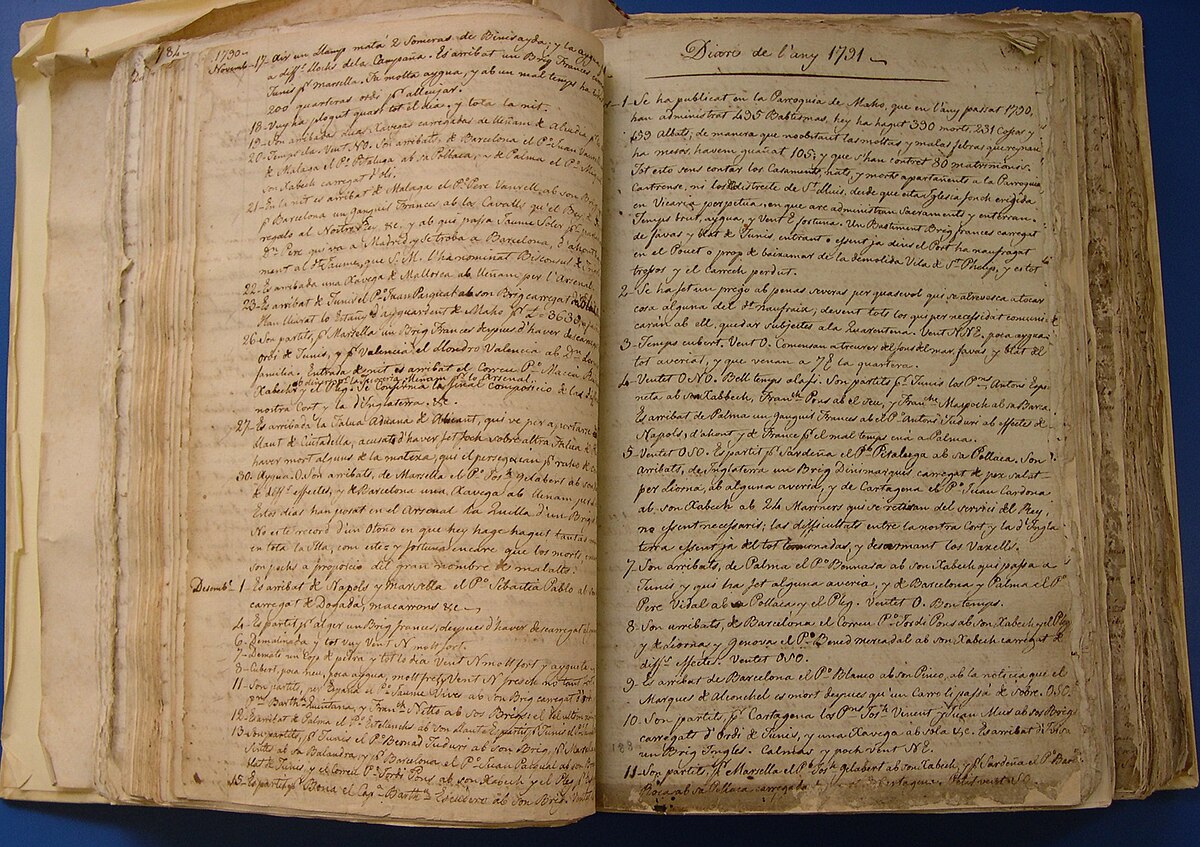 1790
Novemb. 17. Air un llamp matá 2 Someras de Binisayda; y la aygua
a diff.s llochs de la Campaña. Es arribat un Brig Frances
Tunis p.r marsella. Fa molta aygua, y ab un mal temps ha
200 quarteras ordi p.r alleujar.
18. Vuy ha plogut quasi tot el dia, y tota la nit.
19. Son arribadas duas Xavegas carregadas de lleñam de Alcudia
20. Temps cla. Vent NO. Son arribats, de Barcelona el P.n Juan
de Malaga el P.n Pitaluga ab sa Pollaca, y de Palma el P.n
son Xabech carregat d'oli.
21. En la nit es arribat de Malaga el P.n Pere Vanrell, ab son Brig
p.r Barcelona un ganguil Frances ab los Cavalls qu'el Bey de
regala al Nostre Rey &c. y ab qui passa Jaume Soler
D.n Pere qui va a Madrid y se troba a Barcelona,
ment al D.n Jaume, que S. M. l'ha nominat Bisconsul de
22. Es arribada una Xavega de Mallorca ab lleñam per l'Arsenal
23. Es arribat de Tunis el P.n Juan Puigcat ab son Brig carregat
Han lliurat lo Estañ y ayguardent de Maho p.r £ 3635
26. Son partits, p.r Marsella un Brig Frances despues d'haver descarregat
ordi de Tunis, y p.r Valencia el Llondro Valencia ab D.n
familia. Entrada de nit es arribat el Correu P.n Macia
Xabech y el Pleg. Se confirma la final composicio de las
nostra Cort y la d'Inglaterra. &c.
27. Es arribada la Calua Aduana de Alicant, qui ve per aportarse
Haut de Ciutadella, acusat d'haver fet foch sobre altra Falua
haver mort alguns de la mateixa, qui el perseguian p.r
30. Aygua. O. Son arribats, de Marsella el P.n Jos.h Gelabert ab son
de diff.s effectes, y de Barcelona una Xavega ab lleñam
Estos dias han posat en el Arsenal la Quilla d'un Brig
No este record d'un Otoño en que hey hage hagut tantas
en tota la Illa, com este; y fortuna encare que los morts
son pochs a proporcio del gran nombre de malalts.
Desemb.e 1. Es arribat de Napols y marsella el P.n Sebastia Pablo ab
carregat de Dogada, macarrons &c.
4. Es partit p.r alger un Brig frances, despues d'haver descarregat
6. Demalinada y tot vuy Vent N molt fort.
7. Dematí un Cop de pedra y tot lo dia Vent N molt fort y aygueta
8. Cubert, poca neu, poca aygua, molt fret y Vent N fresch no tant
11. Son partits, per España el P.n Jaume Vives ab son Brig carregat
P.ns Barth.u Quintana, y Fran.ch Netto ab sos Brigs
12. Es arribat de Palma el P.n Estelrichs ab son
13. Son partits, p.r Tunis el P.n Bernat Tudurí ab son Brig,
ab sa Balandra, y p.r Barcelona el P.n Juan Pasqual ab son
blat de Tunis, y el Correu P.n Jordi Pons ab son Xabech y el Pleg
15. Es partit p.r Bona el Cap.n Barth.u Escudero ab son Brig.
Diario de l'any 1791
1. Se ha publicat en la Parroquia de Maho, que en l'any passat 1790,
han administrat 495 Babtismes, hey ha hagut 390 morts, 231 Cossos y
159 Albats; de manera que noobstant las moltas y malas febras que regnan
ha mesos, havem guañat 105; y que s'han contret 80 matrimonis.
Tot esto sens contar los Casaments, nats, y morts apartañents a la Parroquia
Castrense, ni los del districte de S.t Lluis, desde que esta Iglesia fonch erigida
en Vicaria perpetua, en que are administran Sacraments y enterran.
Temps brut, aygua, y vent E fortuna. Un Bastiment Brig frances carregat
de favas y blat de Tunis, entrant o essent ja dins el Port ha naufragat
en el Pouet o prop de baixamar de la demolida Vila de S.t Phelip, y es tot
trossos y el carrech perdut.
2. Se ha fet un pregó ab penas severas per quasevol qui se atrevesca a tocar
cosa alguna del dit naufraix, devent tots los qui per necessidat comuni-
caran ab ell, quedar subjectes a la Quarentena. Vent NNE, poca aygua.
3. Temps cubert. Vent O. Comensan a treurer del fons del mar, favas y blat del
tot averiat, y que venan a 7 £ la quartera.
4. Ventet ONO. Bell temps alafi. Son partits p.r Tunis los P.ns Antoni Espi-
neta ab son Xabech, Fran.ch Pons ab el seu, y Fran.ch Maspoch ab sa Barca.
Es arribat de Palma un ganguil Frances ab el P.n Antoni Tudurí ab effectes de
Napols; d'ahont y de France p.r el mal temps era a Palma.
5. Ventet OSO. Es partit p.r Sardeña el P.n Pitaluega ab sa Pollaca. Son
arribats, de Inglaterra un Brig Dinimarques carregat de pex salat
per Liorna, ab alguna averia, y de Cartagena el P.n Juan Cardona
ab son Xabech ab 24 Mariners qui se retiran del servici del Rey,
no essent necessaris, las difficultats entre la nostra Cort y la d'Ingla-
terra essent ja del tot terminadas, y desarmant los Vaxells.
7. Son arribats, de Palma el P.n Bonnasa ab son Xabech qui passa a
Tunis y qui ha fet alguna averia, y de Barcelona y Palma el P.n
Pere Vidal ab sa Pollaca y el Pleg. Ventet O. Bon temps.
8. Son arribats, de Barcelona el Correu P.n Jordi Pons ab son Xabech y el Pleg
y de Liornas y Genova el P.n Bened. mercadal ab son Xabech carregat de
diff.s effectes. Ventet OSO.
9. Es arribat de Barcelona el P.n Blanco ab son Pinco, ab la noticia que el
Marques de Alconchel es mort despues qu'un Carro li passá de sobre. OSO.
10. Son partits, p.r Cartagena los P.ns Jos.h Vinent y Juan Mus ab sos Brigs
carregats d'Ordi de Tunis, y una Xavega ab sola &c. Es arribat d'Ivisa
un Brig Ingles. Calmas y poch Vent NE.
11. Son partits, p.r Marsella el P.n Jos.h Gelabert ab son Xabech, y p.r Sardeña el P.n Bar.
Roca ab sa Pollaca carregada
188